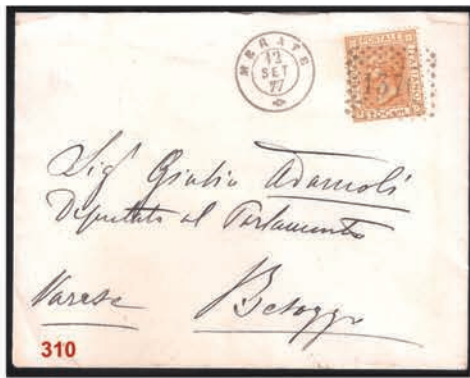 MERATE
12
SET
77
POSTALE
137
Sig. Giulio Adamoli
Diputato al Parlamento
Varese Besozzo
310